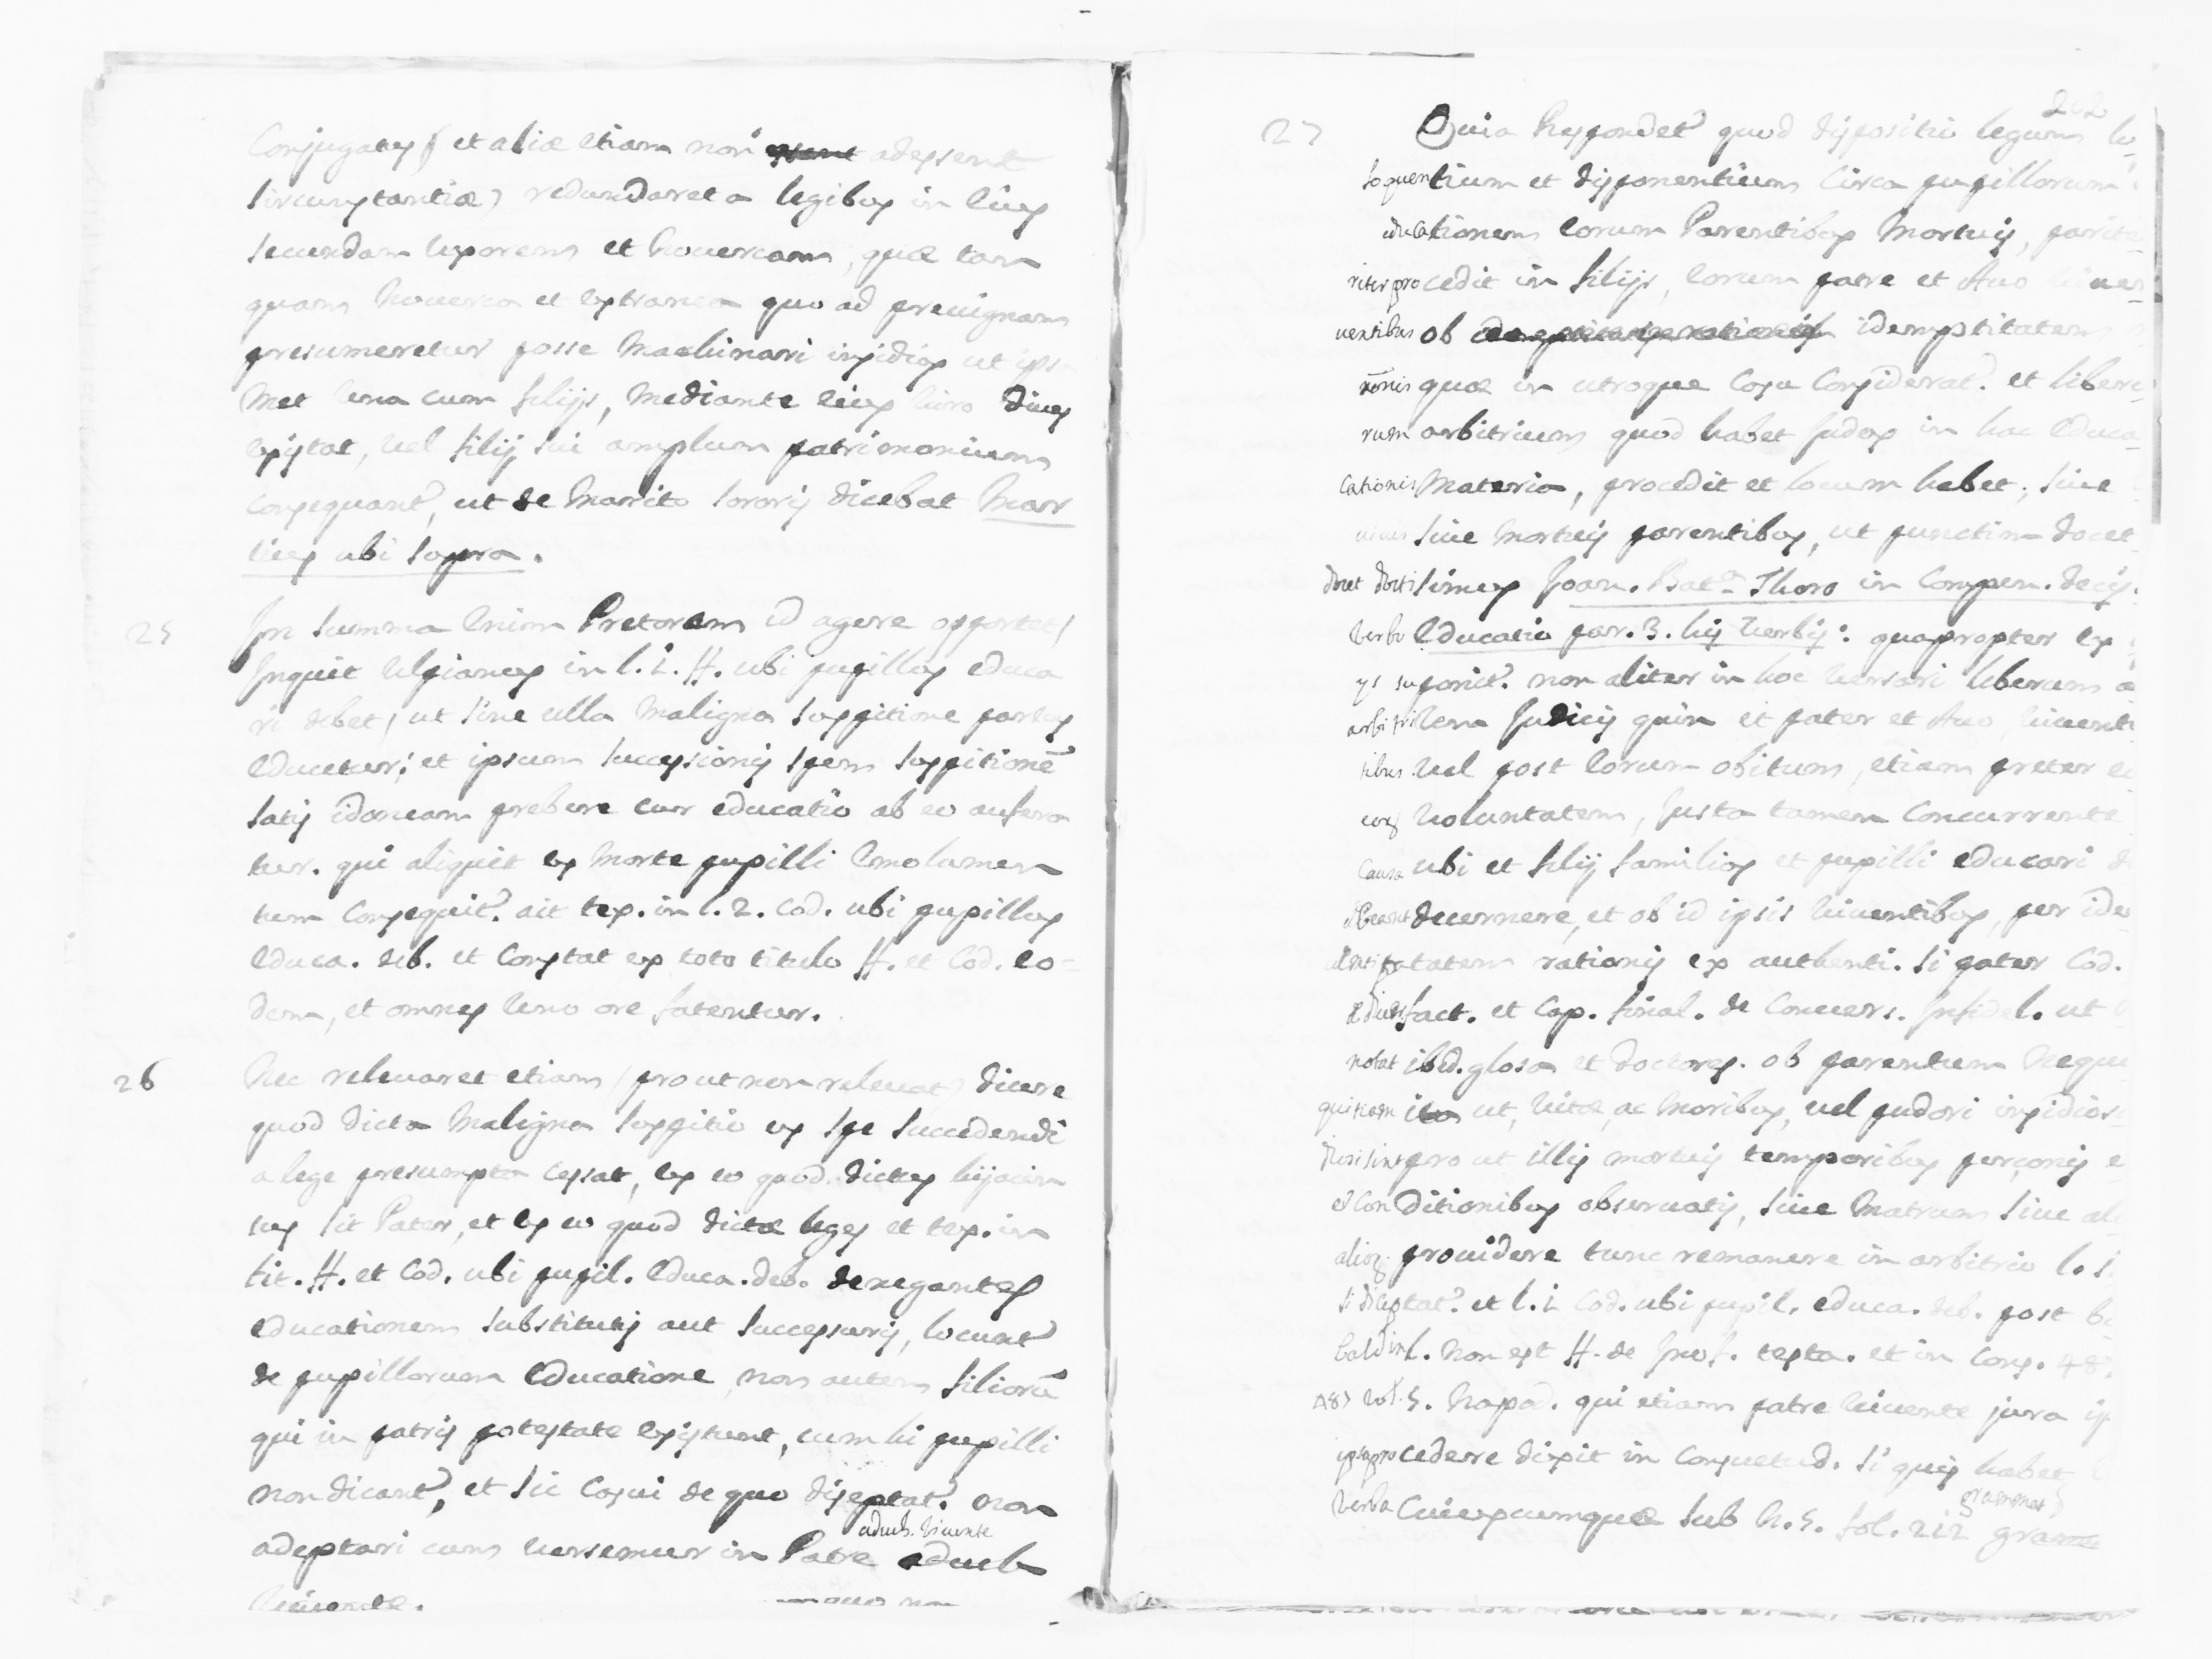 Conjugatus (et aliæ etiam non adessent
circunstantiæ) redundaret a legibus in eius
secundam uxorem et Nouercam, quæ tan
quam Nouerca et extranea quo ad preuignam
presumeretur posse machinari insidias ut ips-
met una cum filijs, mediante eius uiro diues
existat, uel filij sui amplum patrimonium
consequant', ut de marito sororis dicebat Mar
ubi supra.
25 In summa enim Pretorem id agere oportet (
Inquit Ulpianus in l. 1. ff. ubi pupillus educa
ri debet) ut sine ulla maligna suspitione partus
educetur; et ipsum successionis spem suspitionē
satis idoneam prebere cur educatio ab eo aufera
tur. qui aliquit ex morte pupilli emolumen
tum consequit'. ait tex. in l. 2. Cod. ubi pupillus
educa. deb. et constat ex toto titulo ff. et Cod. eo-
dem, et omnes uno ore fatentur.
26 Nec releuaret etiam (prout non releuat) dicere
quod dicta maligna suspitio ex spe succedendi
a lege presumpta cessat, ex eo quod dictus
sit Pater, et ex eo quod dictæ leges et tex. in
tit. ff. et Cod. ubi pupil. educa. deb. denegantes
educationem substitutis aut successoris, locunt'
de pupillorum educatione non autem filiorū
qui in patris potestate existunt, cum hi pupilli
non dicant', et sic casui de quo disceptat' non
aduch. uiuente
adaptari cum uersemur in Patre aduch
uiuente.
202
27 Quia Respondet' quod dispositio legum lo
loquentium et disponentium circa pupillorum
educationem eorum Parentibus Mortuis, parite
riter procedit in filijs, eorum patre et Auo uiuen
uentibus ob idemptitatem
rōnis quæ in utroque casu considerat'. et liberu
rum arbitrium quod habet Judex in hac educa
cationis materia, procedit et locum habet; siue
uiuis siue mortuis parentibus, ut punctim docet
docet doctissimus Joan. Bat.a Thoro in Compen. decis.
verbo Educatio par. 3. his verbis: quapropter ex
ponit'. non aliter in hoc uersari liberum a
arbitrium Judicis quin et pater et Auo uiuenti
tibus uel post eorum obitum, etiam preter
eorum uoluntatem, justa tamen concurrente
causa ubi et filij familias et pupilli educari d
debeant decernere, et ob id ipsis uiuentibus, per ide
identitatem rationis ex authenti. si pater Cod.
diuor. fact. et Cap. final. de Conuers. Infidel. ut
notat ibid. glosa et doctores. ob parentum nequi
quitiam ut, uitæ, ac moribus, uel pudori insidios
diosi sint pro ut illis mortuis temporibus personis e
et conditionibus obseruatis, siue matrum siue ali
alior. prouidere tunc remanere in arbitrio l. si
si disceptat'. et l. 1 Cod. ubi pupil. educa. deb. post ba
bald in l. non est ff. de testa. et in cons. 48
483 uol. 5. Napod. qui etiam patre uiuente jura ip
ipsa procedere dixit in consuetud. si quis habet
verba Cuiuscumquæ sub n. 5. fol. 212
grammat